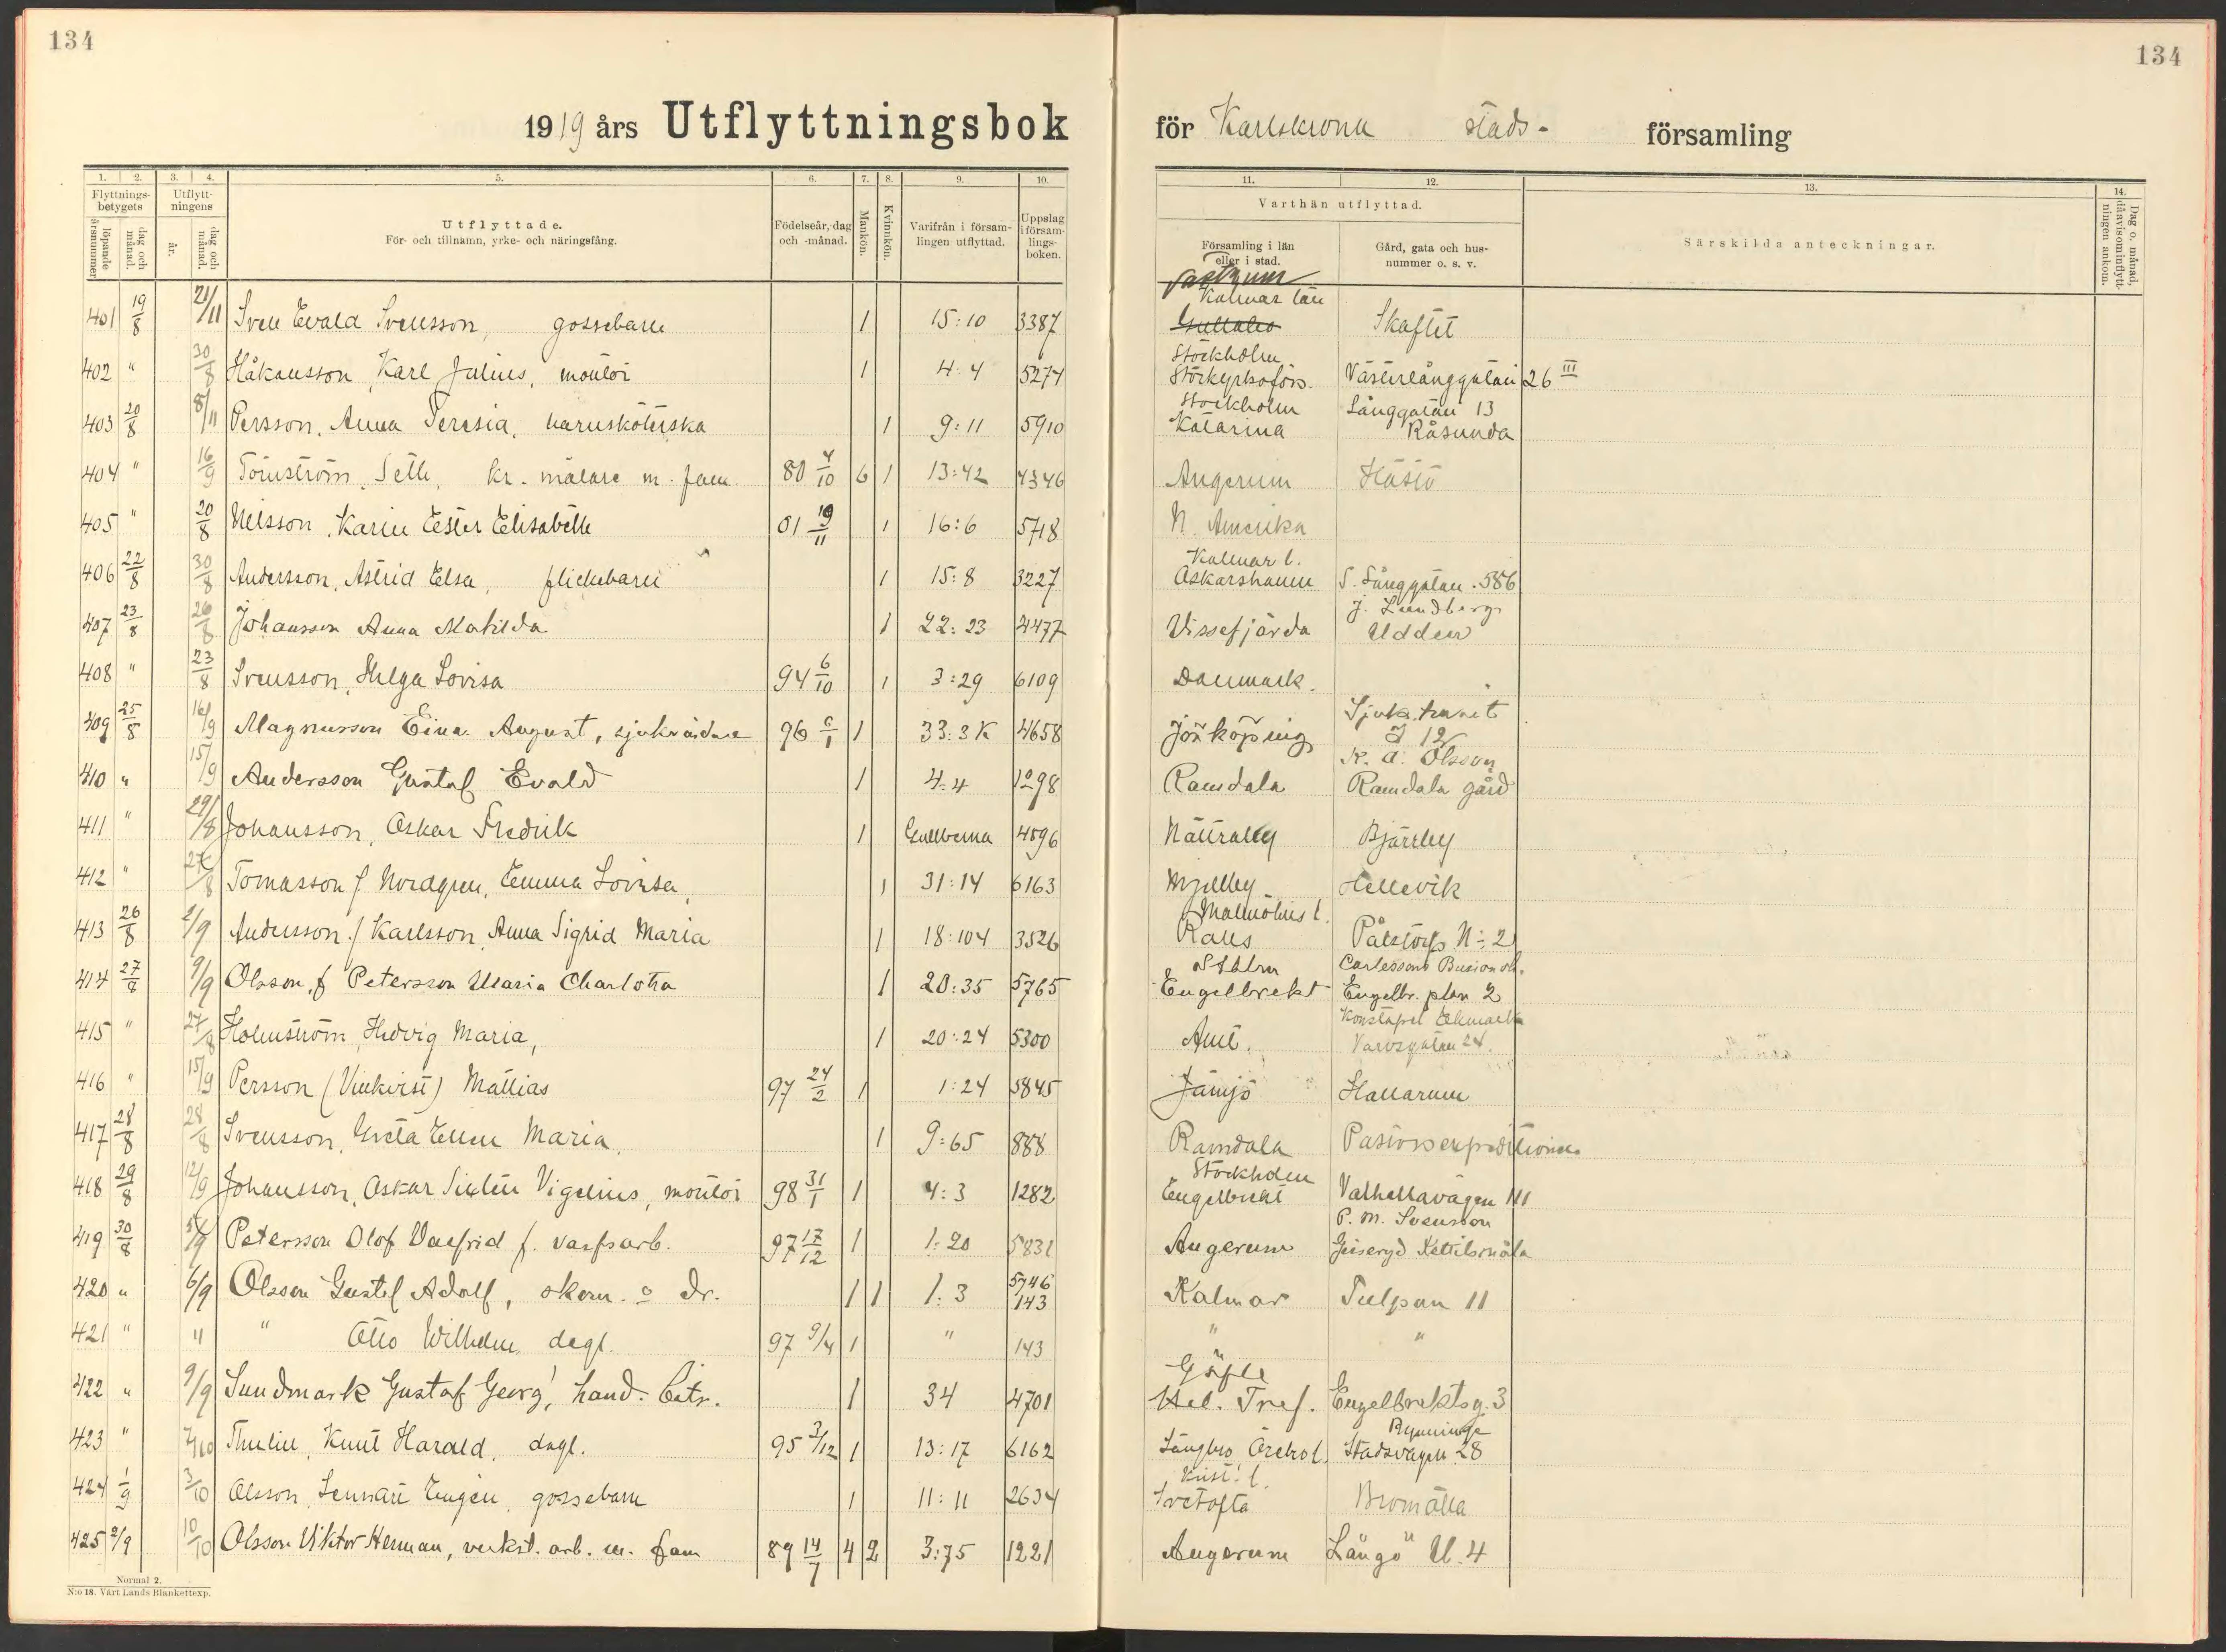 134
134
1919 års Utflyttningsbok för Karlskrona stads- församling
1. 2. 3. 4. 5. 6. 7. 8. 9. 10. 11. 12. 13. 14.
Flyttnings-betygets löpande årsnummer dag och månad.
Utflytt-ningens år. dag och månad.
Utflyttade.
För- och tillnamn, yrke- och näringsfång.
Födelseår, dag och -månad.
Mankön.
Kvinnkön.
Varifrån i försam-lingen utflyttad.
Uppslag i försam-lings-boken.
Varthän utflyttad.
Församling i län eller i stad.
Gård, gata och hus-nummer o. s. v.
Särskilda anteckningar.
Dag o. månad, då avisominflytt-ningen ankom.
401 19/8 21/11 Sven Evald Svensson, gossebarn 1 15:10 3387 Kalmar län Skaftet
402 " 30/8 Håkansson, Karl Julius, montör 1 4:4 5274 Stockholm Storkyrkoförs. Västerlånggatan 26 III
403 20/8 8/11 Persson, Anna Teresia, barnsköterska 1 9:11 5910 Stockholm Katarina Långgatan 13 Råsunda
404 " 16/9 Törnström, Seth, kr. målare m. fam. 80 4/10 6 1 13:42 4346 Augerum Hästö
405 " 20/8 Nilsson, Karin Ester Elisabeth 01 19/11 1 16:6 5718 N. Amerika
406 22/8 30/8 Andersson, Astrid Elsa, flickebarn 1 15:8 3227 Kalmar l. Oskarshamn S. Långgatan 586
407 23/8 26/8 Johansson Anna Matilda 1 22:23 4477 Vissefjärda J. Lundberg Udden
408 " 23/8 Svensson, Helga Lovisa 94 6/10 1 3:29 6109 Danmark.
409 25/8 16/9 Magnusson Einar August, sjukvårdare 96 6/1 1 33:3 K 4658 Jönköping Sjukhuset I 12
410 " 15/9 Andersson Gustaf Evald 1 4:4 1298 Ramdala K. A. Olsson Ramdala gård
411 " 29/8 Johansson, Oskar Fredrik 1 Gullberna 4596 Nättraby Bjärby
412 " 27/8 Tomasson f. Nordgren, Emma Lovisa, 1 31:14 6163 Mjellby Hellevik
413 26/8 2/9 Andersson f. Karlsson, Anna Sigrid Maria 1 18:104 3526 Malmöhus l. Raus Påtstorp N:2
414 27/8 9/9 Olsson, f. Petersson Maria Charlotta 1 20:35 5765 Sthlm Engelbrekt Engelbr. plan 2
415 " 27/8 Holmström, Hedvig Maria, 1 20:24 5300 Amt. Konstapel Ekmark Varvsgatan 24.
416 " 15/9 Persson (Vinkvist) Mattias 97 24/2 1 1:24 5845 Jämjö Hallarum
417 28/8 28/8 Svensson, Greta Ellen Maria 1 9:65 888 Ramdala Pastorsexpeditionen
418 29/8 12/9 Johansson, Oskar Sixten Vigelius, montör 98 31/1 1 4:3 1282 Stockholm Engelbrekt Valhallavägen 111
419 30/8 5/9 Petersson Olof Valfrid f. varfsarb. 97 17/12 1 1:20 5831 Augerum P. M. Svensson Kettilsmåla
420 " 6/9 Olsson Gustaf Adolf, skom. o dr. 1 1 1:3 5746 143 Kalmar Tulpan 11
421 " " " Otto Wilhelm dagl. 97 9/4 1 " 143 " "
422 " 9/9 Sundmark Gustaf Georg, hand. bitr. 1 34 4701 Gäfle Hel. Tref. Engelbrektsg. 3
423 " 7/10 Thulin, Knut Harald, dagl. 95 3/12 1 13:17 6162 Längbro Örebro l. Rynninge Stadsvägen 28
424 1/9 3/10 Olsson, Lennart Eugén, gossebarn 1 11:11 2634 Krist. l. Ivetofta Bromölla
425 2/9 10/10 Olsson Viktor Herman, verkst. arb. m. fam 89 14/7 4 2 3:75 1221 Augerum Långö U. 4
Normal 2.
N:o 18. Vårt Lands Blankettexp.